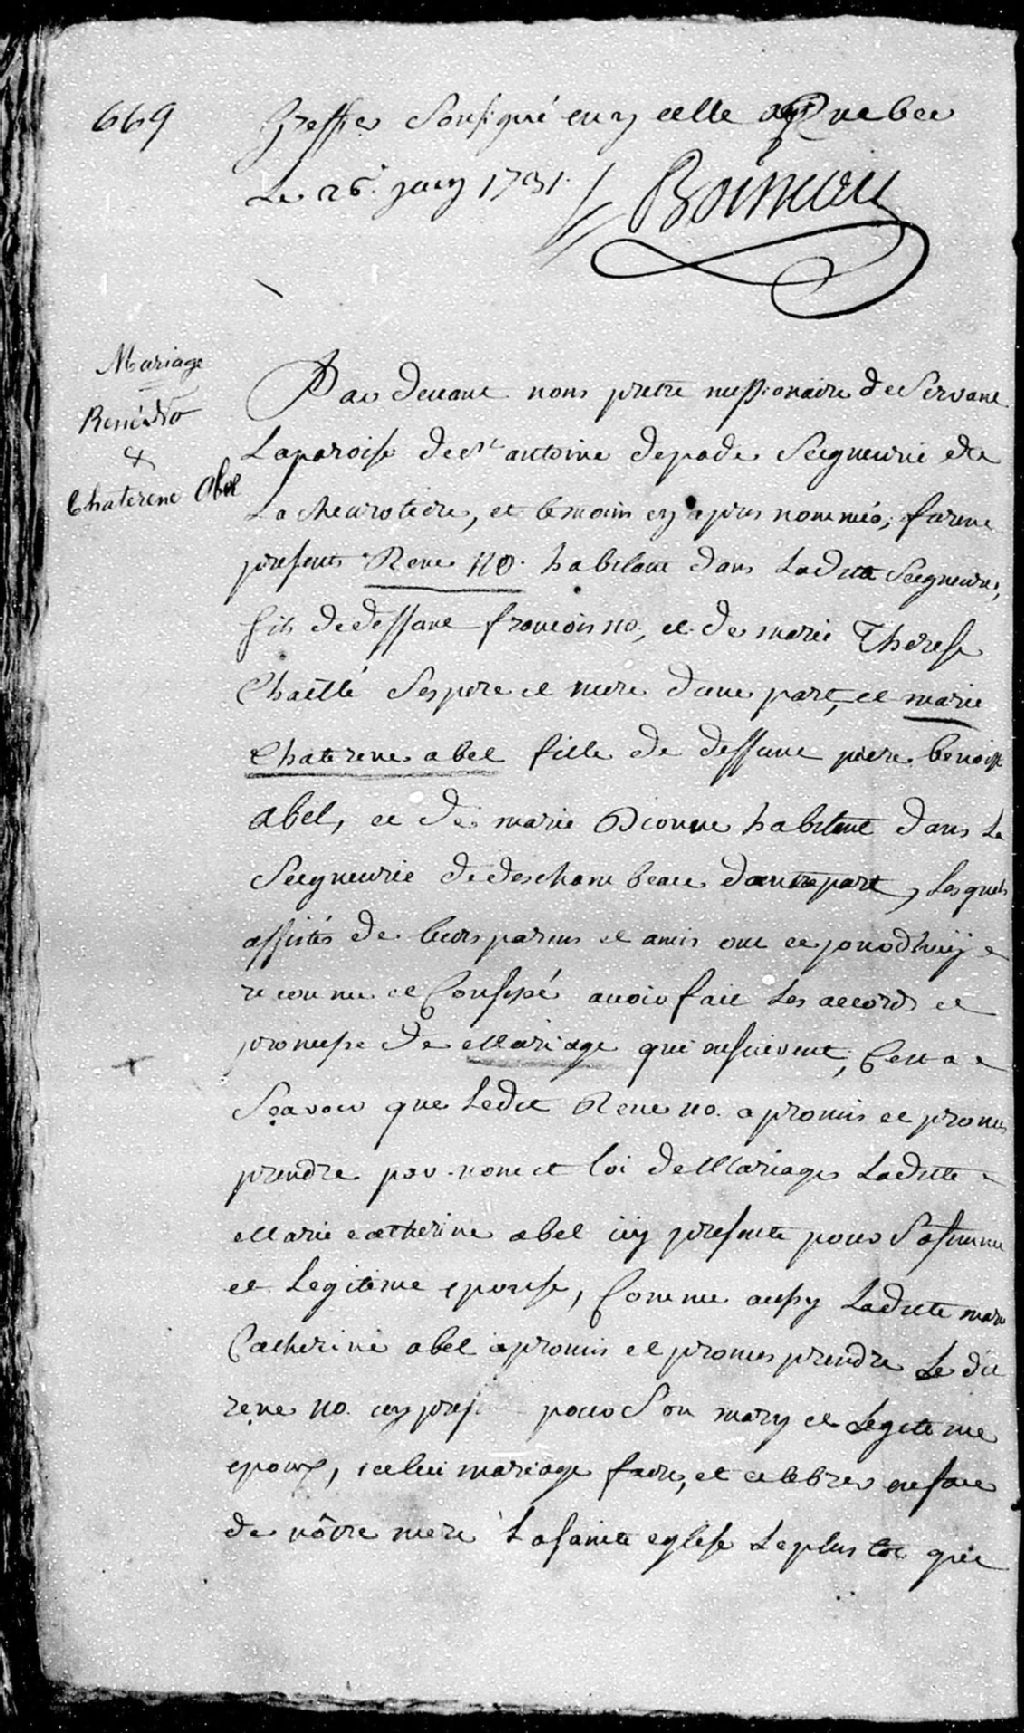 669
Greffier Sousigné en y celle a Quebec
Le 26. juin 1731. Boisseau
Mariage
René No
&
Chaterene Abel
Par devant nous pretre missionaire deServant
Laparoisse de St antoine depade Seigneurie de
La chevrotiere, et temoins cy apres nommés, furent
presents Rene no. habitant dans Ladite Seigneurie,
fils dedeffunt francois no, et de marie Therese
Chaillé Ses pere et mere d'une part, et marie
Chaterene abel fille de deffunt pierre benoist
abel, et de marie Dionne habitant dans La
Seigneurie de deschambeau dautrepart, Lesquels
assistés de leurs parens et amis ont ce jourdhuÿ
reconnu et Confessé avoir fait Les accords et
promesse de Mariage qui ensuivent, C'est a
Sçavoir que Ledit Rene no. a promis et promet
prendre par nom et loi deMariage Ladite
Marie catherine abel icy presente pour Safemme
et Legitime epouse, Comme aussy Ladite marie
Catherine abel a promis et promet prendre Le dit
rene no. icy pres pour Son mary et Legitime
epoux, icelui mariage faire, et celebrer enface
de nôtre mere Lasainte eglise Leplus tot que